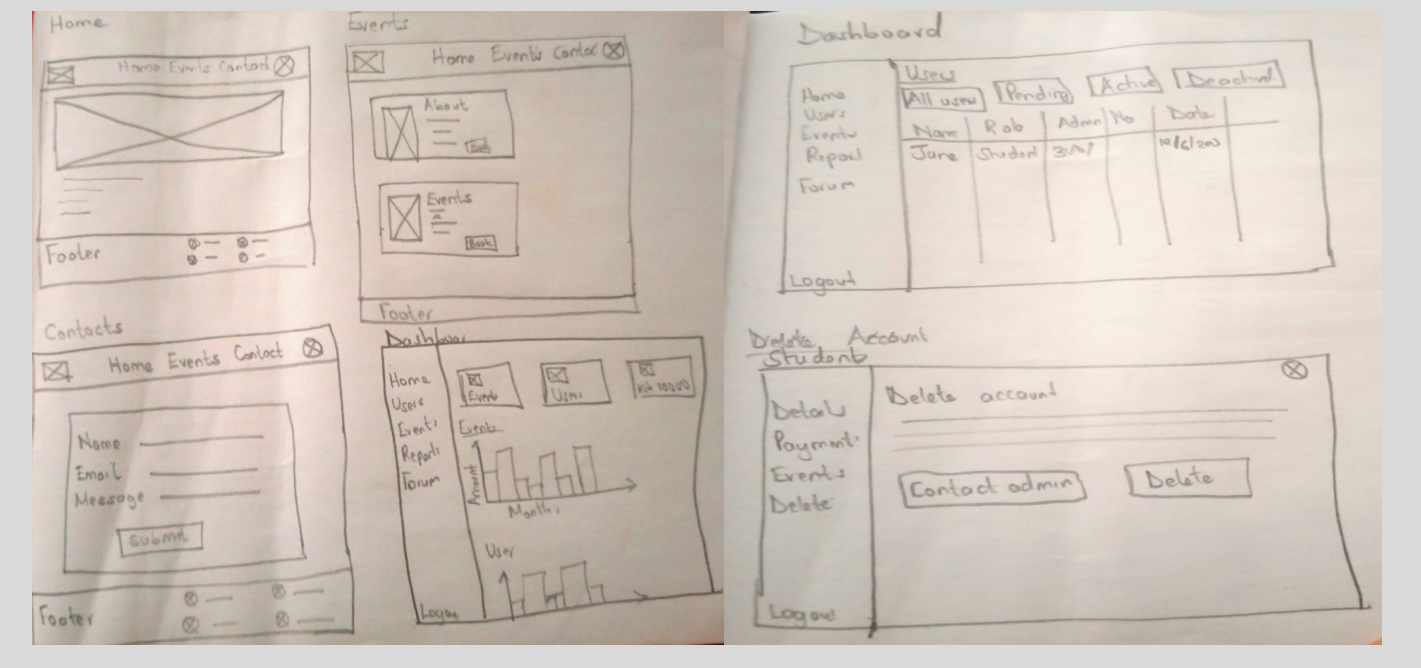 Home
Home Events Contact
Footer
Events
Home Events Contac
About
Book
Events
Book
Footer
Contacts
Home Events Contact
Name
Email
Message
Submit
Footer
Dashboar
Home
Users
Events
Reports
Forum
Logou
Events
Users
Ksh 10000
Events
Amount
Months
User
Dashboard
Home
Users
Events
Report
Forum
Logout
Users
All users
Pending
Active
Name
Admn No
Date
Jane
Student
Delete Account
Student
Details
Payments
Events
Delete
Logout
Delete account
Contact admin
Delete